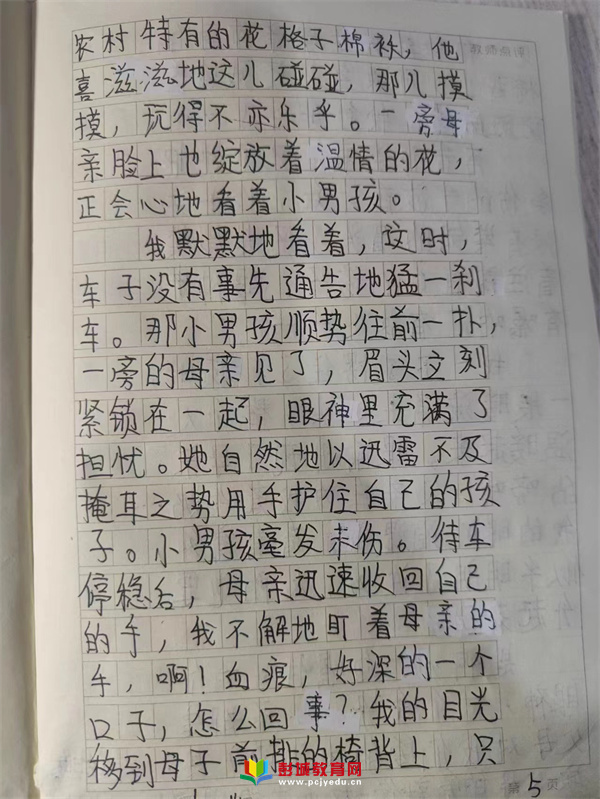 农村特有的花格子棉袄，他
喜滋滋地这儿碰碰，那儿摸
摸，玩得不亦乐乎。一旁母
亲脸上也绽放着温情的花，
正会心地看着小男孩。
我默默地看着，这时，
车子没有事先通告地猛一刹
车。那小男孩顺势往前一扑，
一旁的母亲见了，眉头立刻
紧锁在一起，眼神里充满了
担忧。她自然地以迅雷不及
掩耳之势用手护住自己的孩
子。小男孩毫发未伤。待车
停稳后，母亲迅速收回自己
的手，我不解地盯着母亲的
手，啊！血痕，好深的一个
口子，怎么回事？我的目光
移到母子前排的椅背上，只
彭城教育网
www.pcjyedu.cn
第5页